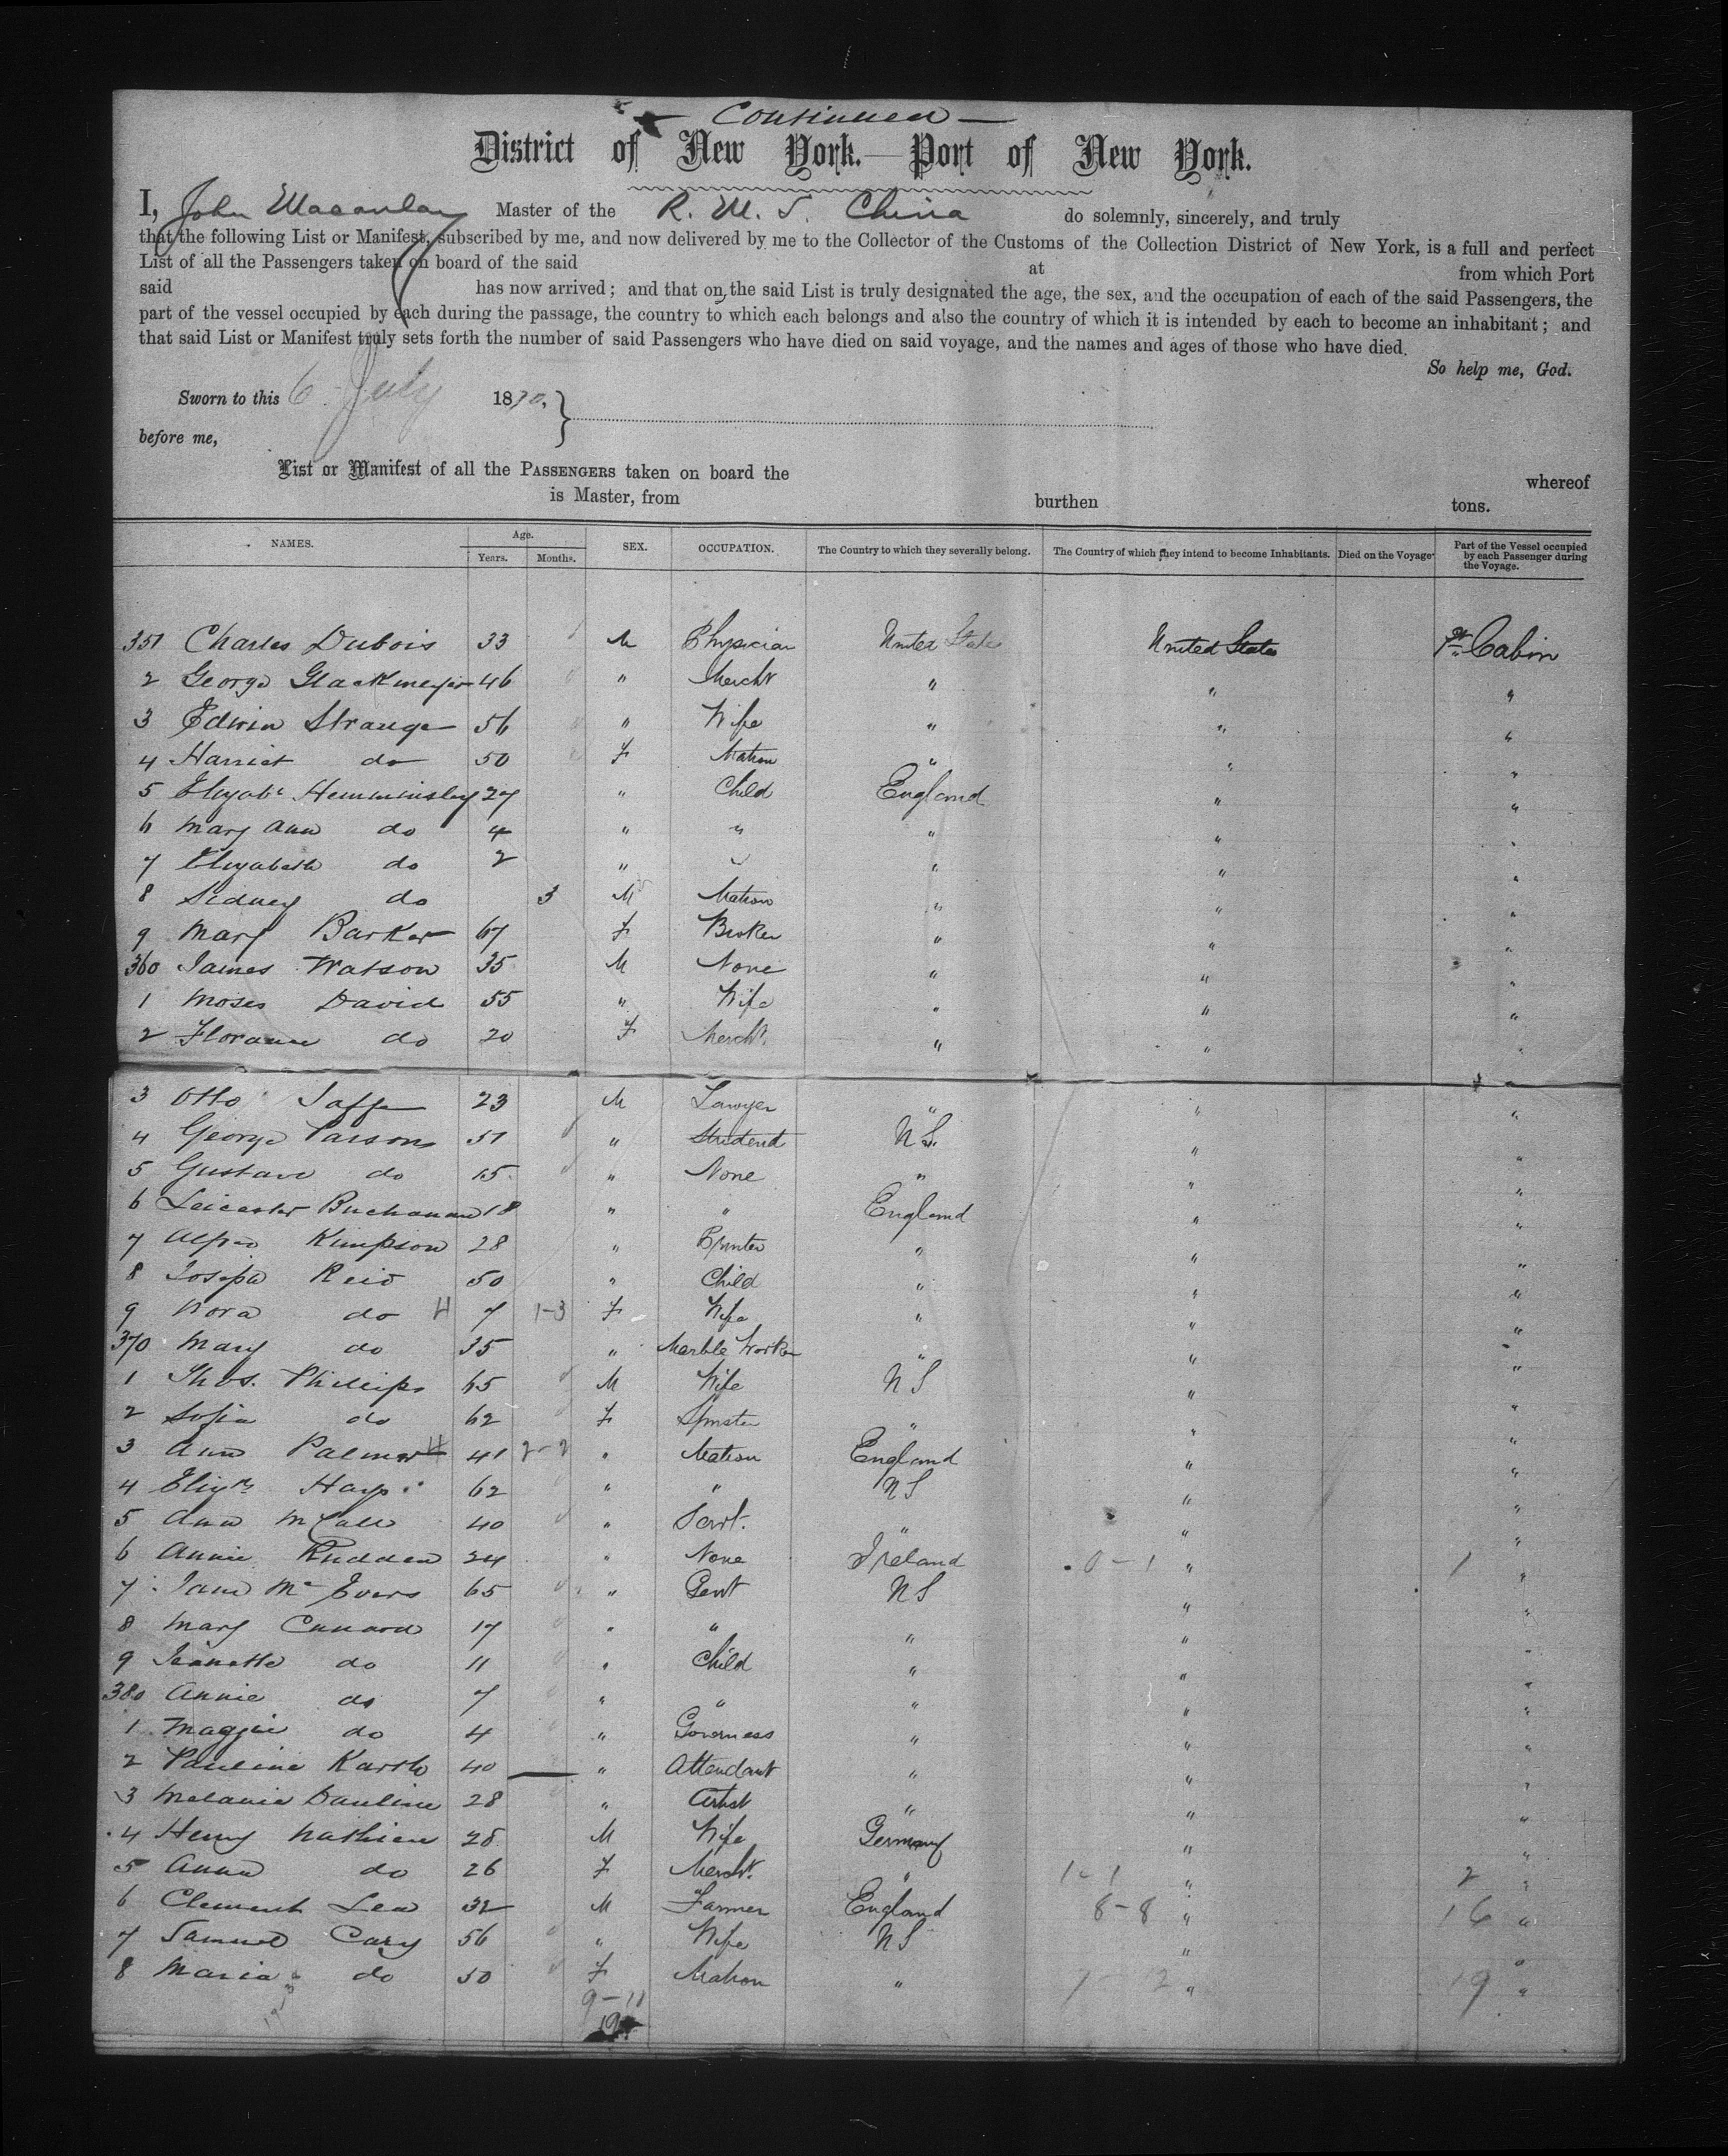 Continued —
District of New York.—Port of New York.
I, John Macaulay Master of the R. M. S. China do solemnly, sincerely, and truly
that the following List or Manifest, subscribed by me, and now delivered by me to the Collector of the Customs of the Collection District of New York, is a full and perfect
List of all the Passengers taken on board of the said at from which Port
said has now arrived; and that on the said List is truly designated the age, the sex, and the occupation of each of the said Passengers, the
part of the vessel occupied by each during the passage, the country to which each belongs and also the country of which it is intended by each to become an inhabitant; and
that said List or Manifest truly sets forth the number of said Passengers who have died on said voyage, and the names and ages of those who have died.
So help me, God.
Sworn to this 6 July 1870,
before me,
List or Manifest of all the PASSENGERS taken on board the whereof
is Master, from burthen tons.
NAMES. Age. Years. Months. SEX. OCCUPATION. The Country to which they severally belong. The Country of which they intend to become Inhabitants. Died on the Voyage Part of the Vessel occupied by each Passenger during the Voyage.
351 Charles Dubois 33 M Physician United States United States 1st Cabin
2 George Glackmeyer 46 " Mercht " " "
3 Edwin Strange 56 " Wife " " "
4 Harriet do 50 F Matron " " "
5 Elizabt Hemminsley 27 " Child England " "
6 Mary Ann do 4 " " " " "
7 Elizabeth do 2 " " " " "
8 Sidney do 3 M Matron " " "
9 Mary Barker 67 F Broker " " "
360 James Watson 35 M None " " "
1 Moses David 55 " Wife " " "
2 Florance do 20 F Mercht. " " "
3 Otto Jaffe 23 M Lawyer " " "
4 George Parsons 51 " Student U S. " "
5 Gustave do 15 " None " " "
6 Leicester Buchanan 18 " " England " "
7 Alfred Kimpson 28 " Printer " " "
8 Joseph Reid 50 " Child " " "
9 Nora do H 7 1-3 F Wife " " "
370 Mary do 35 " Marble Worker " " "
1 Thos. Phillips 65 M Wife U S " "
2 Sofia do 62 F Spinster " " "
3 Ann Palmer H 41 2-2 " Matron England " "
4 Eliz Hays 62 " " U S " "
5 Ann McCall 40 " Servt. " " "
6 Annie Rudden 24 " None Ireland 0-1 " 1 "
7 Jane Mc Evers 65 " Gent U S " "
8 Mary Cunard 17 " " " " "
9 Jeanette do 11 " Child " " "
380 Annie do 7 " " " " "
1 Maggie do 4 " Governess " " "
2 Pauline Karth 40 " Attendant " " "
3 Melanie Dauline 28 " Artist " " "
4 Henry Mathieu 28 M Wife Germany " "
5 Anna do 26 F Mercht. " 1-1 " 2 "
6 Clement Lea 32 M Farmer England 8-8 " 16 "
7 Samuel Cary 56 " Wife U S " "
8 Maria do 50 F Matron " 1-2 " 19 "
9-11
19